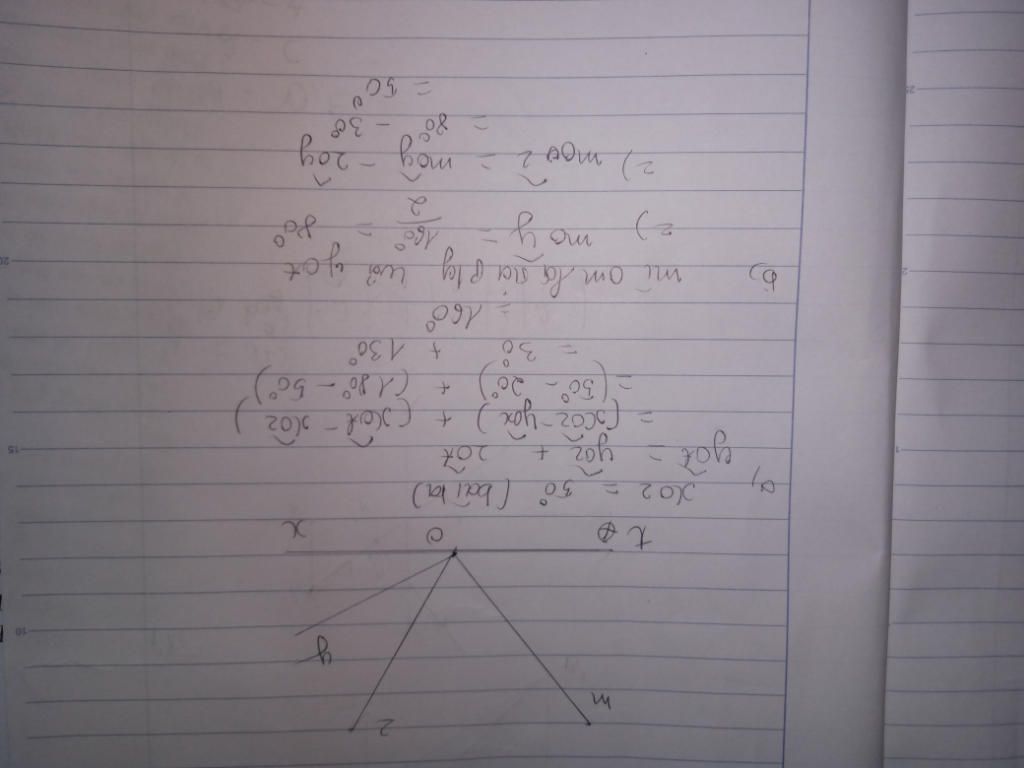 m z
y
t O x
a) xOz = 50° (bài ra)
yOt = yOz + zOt
= (xOz - yOx) + (xOt - xOz)
= (50° - 20°) + (180° - 50°)
= 30° + 130°
= 160°
b) Om là tia p/g của yOt
=) mOy = 160°/2 = 80°
=) mOz = mOy - zOy
= 80° - 30°
= 50°